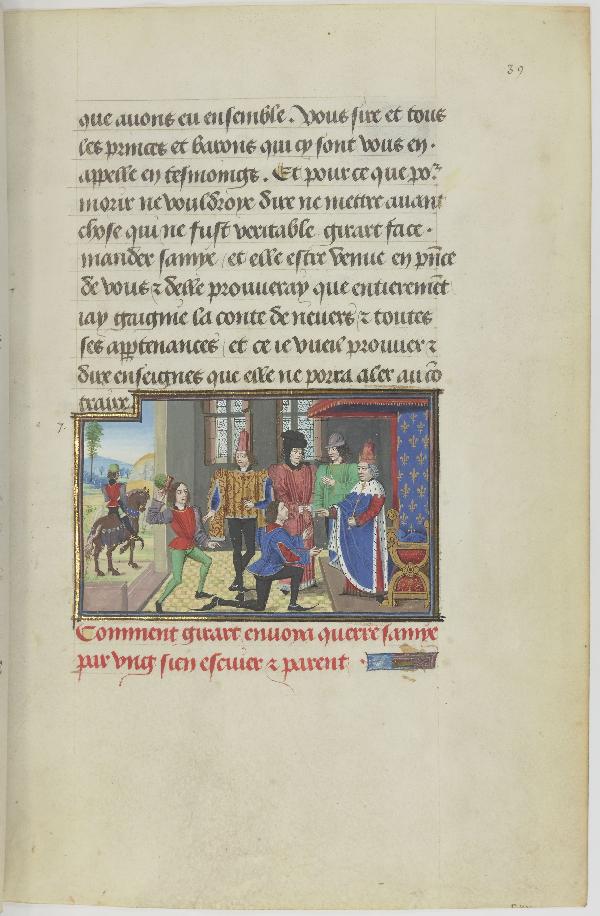 39
que auons eu ensemble. Vous sire et tous
les princes et barons qui cy sont vous en
appelle en tesmoings. Et pour ce que po᷑
morir ne vouldroye dire ne mettre auant
chose qui ne fust veritable girart face
mander samye / et elle estre venue en pn̄ce
de vous ⁊ delle prouueray que entieremēt
iay gaignie la conte de neuers ⁊ toutes
ses apptenances / et ce ie vueil prouuer ⁊
dire enseignes que elle ne porra aler au cō
traire
7.
Comment girart enuoya querre samye
par vng sien escuier ⁊ parent